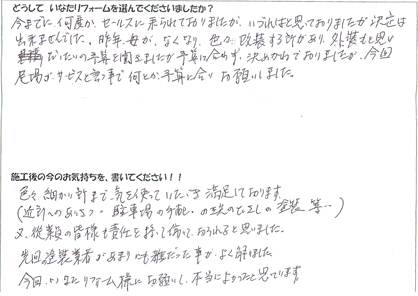 どうして いなたリフォームを選んでくださいましたか?
今までに、何度か、セールスに来られておりましたが、いづれはと思っておりましたが決定は
出来ませんでした。昨年、母が、なくなり、色々改装する所があり、外装もと思い
だいたいの予算を聞きましたが予算に合わず、決めかねておりましたが、今回
足場がサービスと言う事で何とか予算に合いお願いしました。
施工後の今のお気持ちを、書いてください!!
色々、細かい所まで、気を使っていただき満足しております。
(近所へのあいさつ・駐車場の手配・の塗装 等・・)
又、従業員の皆様も責任を持って働いておられると思いました。
先回の塗装業者があまりにも雑だった事が、よく解りました。
今回、いなたリフォーム様にお願いして、本当によかったと思っています。